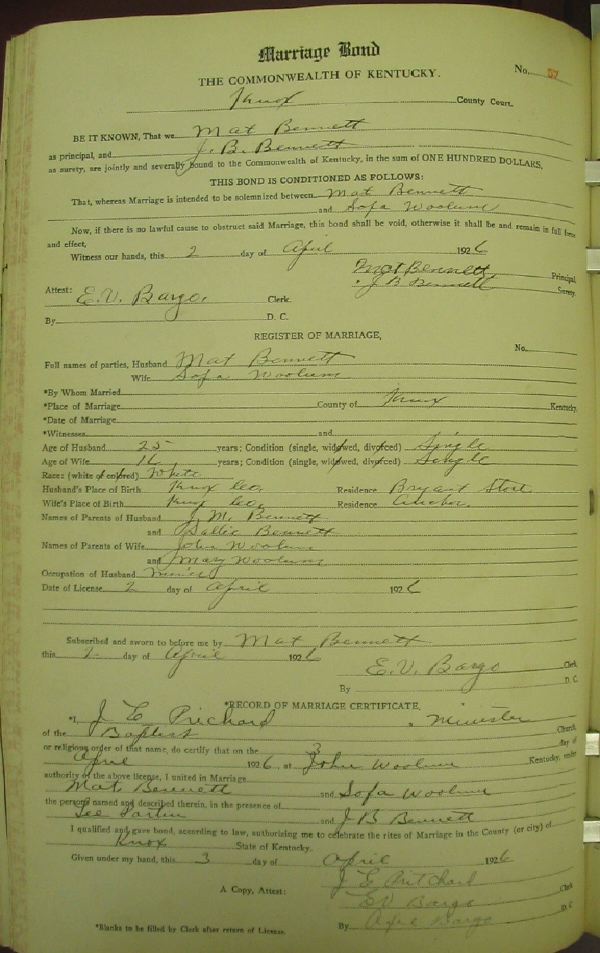 Marriage Bond
THE COMMONWEALTH OF KENTUCKY.
No. 57
Knox County Court.
BE IT KNOWN, That we Mat Bennett
as principal, and J. B. Bennett
as surety, are jointly and severally bound to the Commonwealth of Kentucky, in the sum of ONE HUNDRED DOLLARS,
THIS BOND IS CONDITIONED AS FOLLOWS:
That, whereas Marriage is intended to be solemnized between Mat Bennett
and Sofa Woolum
Now, if there is no lawful cause to obstruct said Marriage, this bond shall be void, otherwise it shall be and remain in full force
and effect.
Witness our hands, this 2 day of April 1926
Mat Bennett Principal.
J B Bennett Surety.
Attest: E.V. Bargo, Clerk.
By D. C.
REGISTER OF MARRIAGE,
No.
Full names of parties, Husband Mat Bennett
Wife Sofa Woolum
*By Whom Married
*Place of Marriage County of Knox Kentucky.
*Date of Marriage
*Witnesses and
Age of Husband 25 years; Condition (single, widowed, divorced) Single
Age of Wife 16 years; Condition (single, widowed, divorced) Single
Race: (white or colored) White
Husband's Place of Birth Knox Co. Residence Bryant Store
Wife's Place of Birth Knox Co. Residence
Names of Parents of Husband J. M. Bennett
and Sallie Bennett
Names of Parents of Wife John Woolum
and Mary Woolum
Occupation of Husband Miner
Date of License 2 day of April 1926
Subscribed and sworn to before me by Mat Bennett
this 2 day of April 1926
E.V. Bargo Clerk
By D. C.
*RECORD OF MARRIAGE CERTIFICATE,
*I, J E Prichard a Minister
of the Baptist Church,
or religious order of that name, do certify that on the 3 day of
April 1926, at John Woolum Kentucky, under
authority of the above license, I united in Marriage
Mat Bennett and Sofa Woolum
the persons named and described therein, in the presence of
Lee Partin and J B Bennett
I qualified and gave bond, according to law, authorizing me to celebrate the rites of Marriage in the County (or city) of
Knox State of Kentucky.
Given under my hand, this 3 day of April 1926
J E Pritchard
A Copy, Attest: EV Bargo Clerk
By Bargo D. C
*Blanks to be filled by Clerk after return of License.